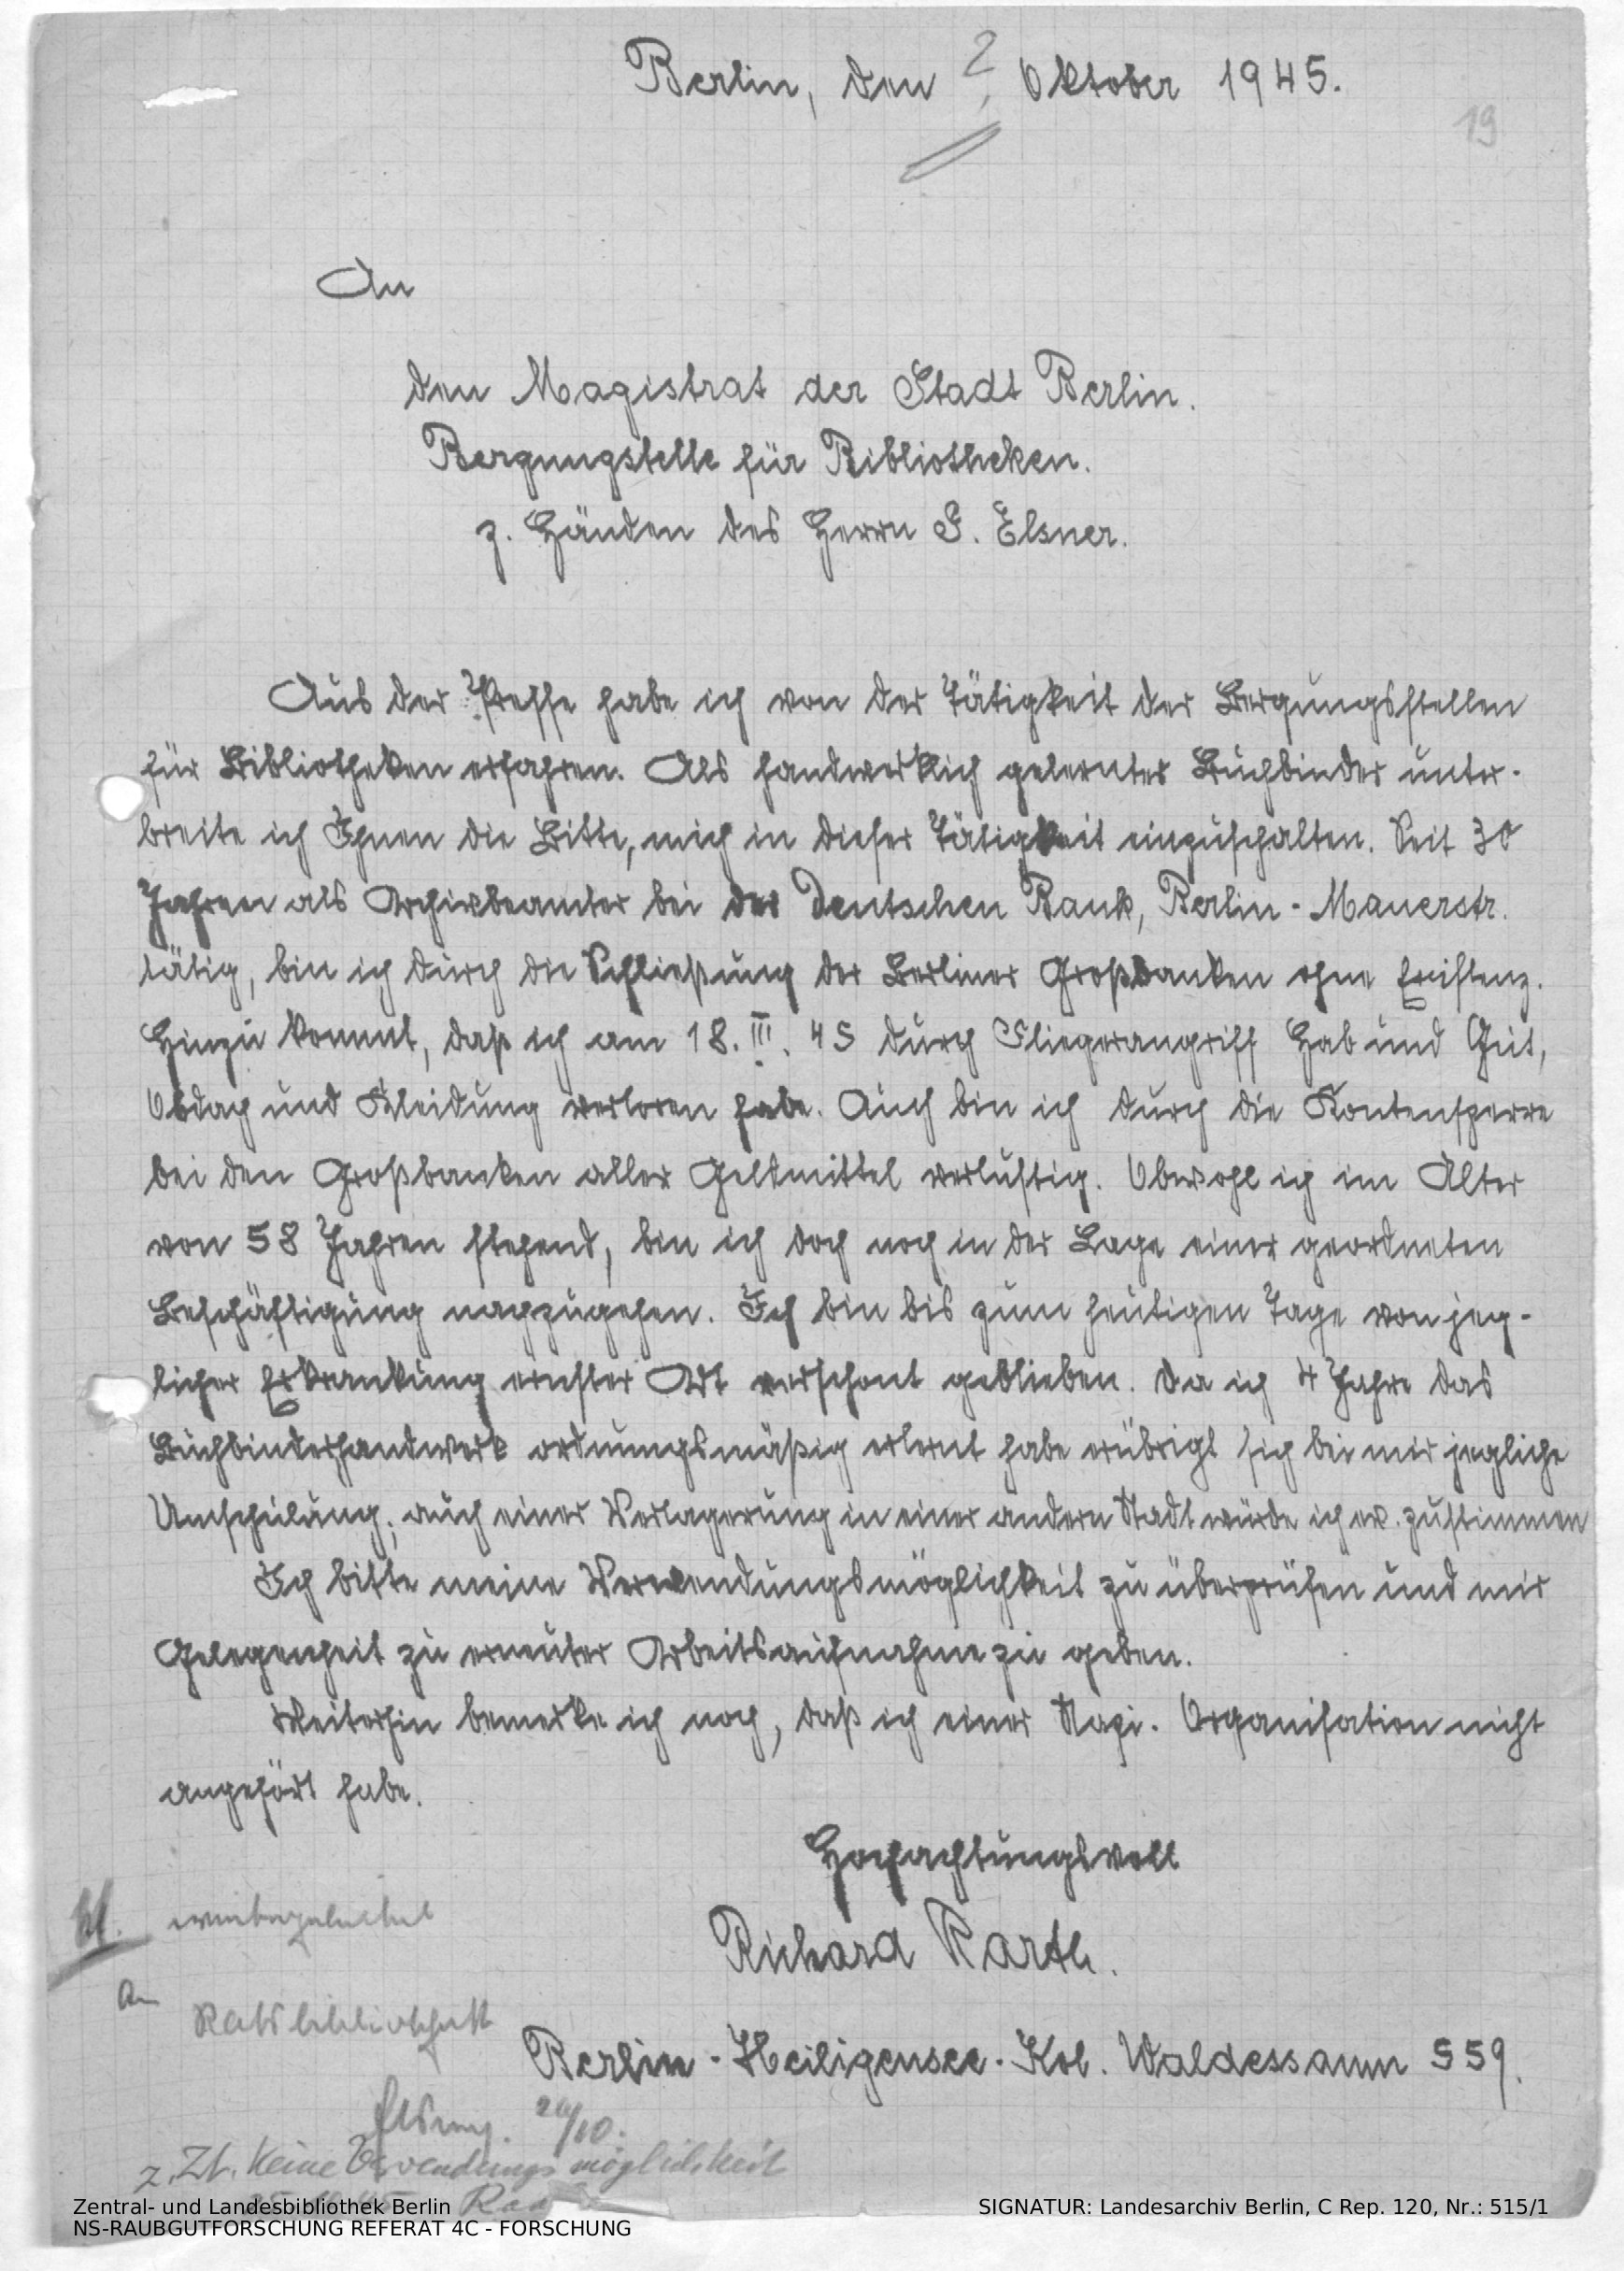 Berlin, den 2. Oktober 1945.
19
An
den Magistrat der Stadt Berlin.
Bergungstelle für Bibliotheken.
z. Händen des Herrn G. Elsner.
Aus der Presse habe ich von der Tätigkeit der Bergungsstellen
für Bibliotheken erfahren. Als handwerklich gelernter Buchbinder unter-
breite ich Ihnen die Bitte, mich in dieser Tätigkeit einzuschalten. Seit 30
Jahren als Archivbeamter bei der Deutschen Bank, Berlin-Mauerstr.
tätig, bin ich durch die Schließung der Berliner Großbanken ohne Existenz.
Hinzu kommt, daß ich am 18. III. 45 durch Fliegerangriff Hab und Gut,
Obdach und Kleidung verloren habe. Auch bin ich durch die Kontensperre
bei den Großbanken aller Geldmittel verlustig. Obwohl ich im Alter
von 58 Jahren stehend, bin ich doch noch in der Lage einer geordneten
Beschäftigung nachzugehen. Ich bin bis zum heutigen Tage von jeg-
licher Erkrankung ernster Art verschont geblieben. Da ich 4 Jahre das
Buchbinderhandwerk ordnungsmäßig erlernt habe erübrigt sich bei mir jegliche
Umschulung; auch einer Verlagerung in einer andern Stadt würde ich ev. zustimmen
Ich bitte meine Verwendungsmöglichkeit zu überprüfen und mir
Gelegenheit zu erneuter Arbeitsaufnahme zu geben.
Weiterhin bemerke ich noch, daß ich einer Nazi-Organisation nicht
angehört habe.
Hochachtungsvoll
Richard Barth.
weitergeleitet
An
Ratsbibliothek
Berlin-Heiligensee-Kol. Waldessaum 559.
Elsner. 20/10.
z. Zt. keine Verwendungsmöglichkeit
Zentral- und Landesbibliothek Berlin
NS-RAUBGUTFORSCHUNG REFERAT 4C - FORSCHUNG
SIGNATUR: Landesarchiv Berlin, C Rep. 120, Nr.: 515/1